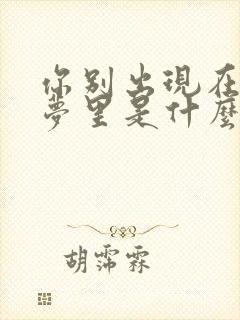 你别出現在
夢里是什麼
胡霈霖